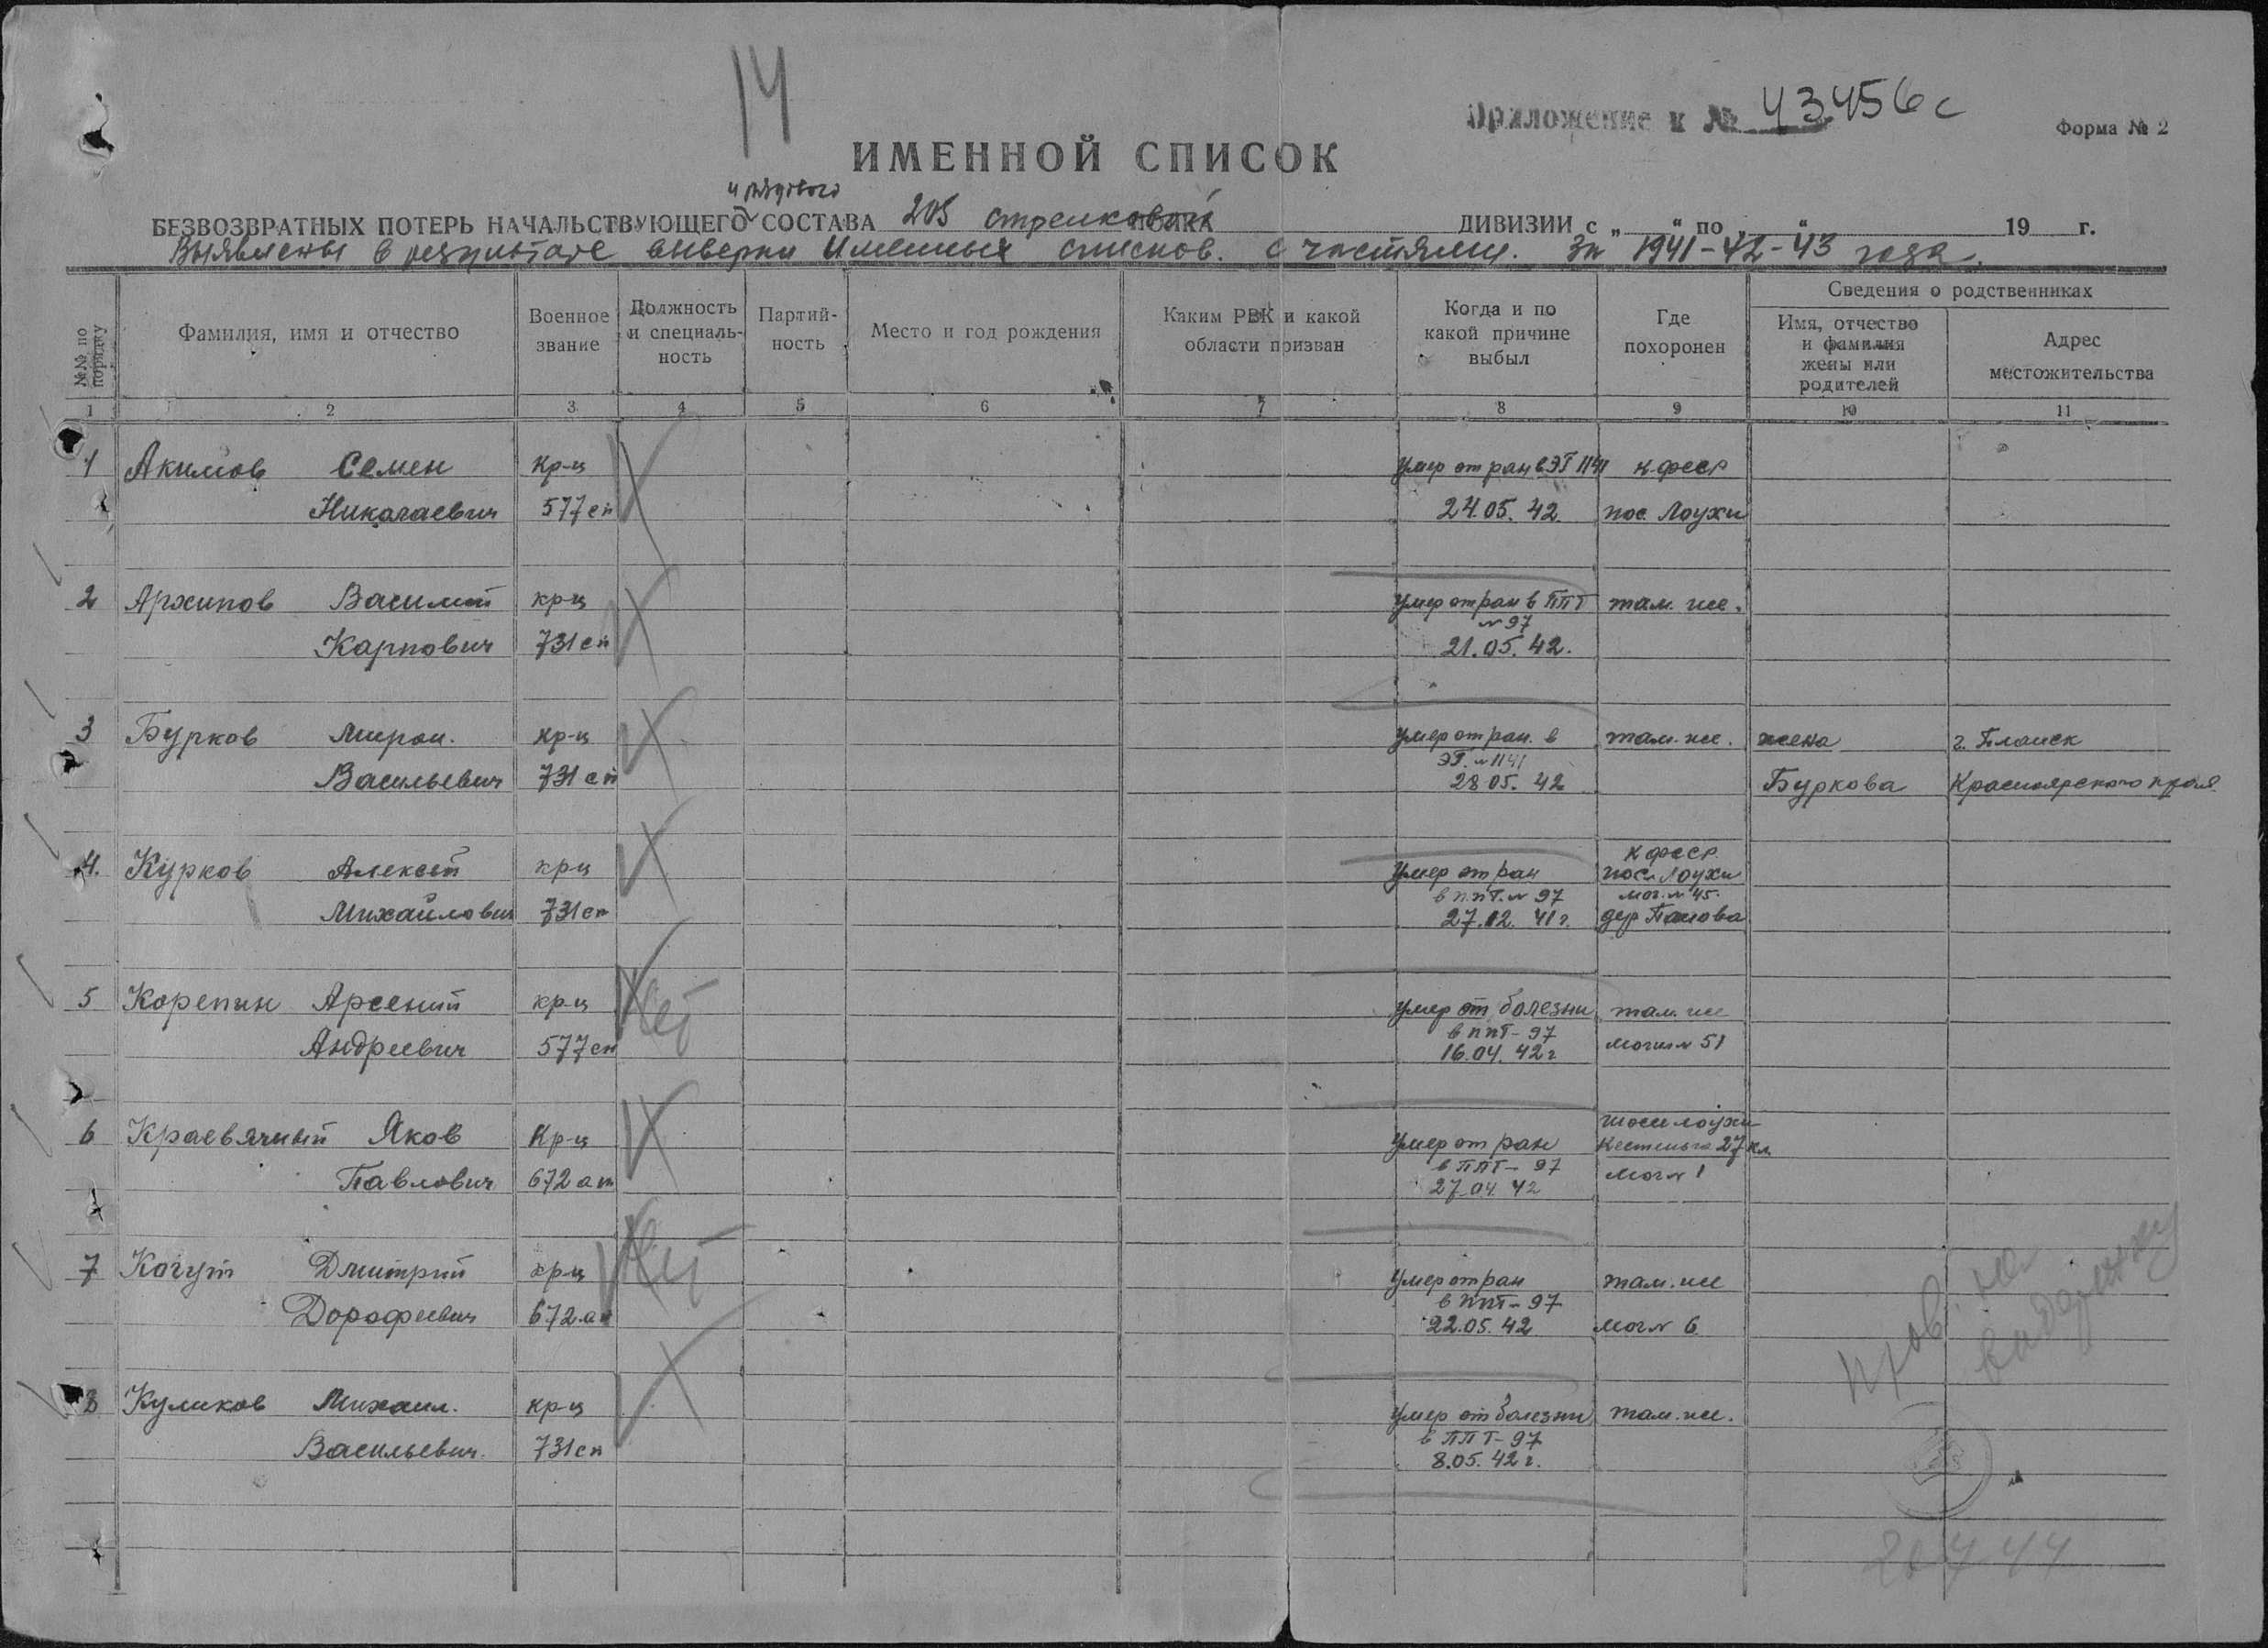 14
Приложение к № 43456с
Форма № 2
ИМЕННОЙ СПИСОК
и рядового
БЕЗВОЗВРАТНЫХ ПОТЕРЬ НАЧАЛЬСТВУЮЩЕГО СОСТАВА 205 стрелковой ДИВИЗИИ с „ “ по „ “ 19 г.
Выявлены в результате сверки Именных списков. с частями. За 1941-42-43 года.
№№ по порядку
Фамилия, имя и отчество
Военное звание
Должность и специаль-ность
Партий-ность
Место и год рождения
Каким РВК и какой области призван
Когда и по какой причине выбыл
Где похоронен
Сведения о родственниках
Имя, отчество и фамилия жены или родителей
Адрес местожительства
1 2 3 4 5 6 7 8 9 10 11
1 Акимов Семен Кр-ц Умер от ран в ЭГ 1141 К-фсср
Николаевич 577 сп 24.05.42 пос. Лоухи
2 Архипов Василий кр-ц Умер от ран в ППГ там же.
№ 97
Карпович 731 сп 21.05.42.
3 Бурков Мирон. Кр-ц Умер от ран. в там же. жена г. Планск
ЭГ. № 1141
Васильевич 731 сп 28.05.42 Буркова Красноярского края
К фсср
4. Курков Алексей кр-ц Умер от ран пос. Лоухи
в ппг. № 97 мог. № 45.
Михайлович 731 сп 27.12.41 г. дер
5 Корепин Арсений кр-ц Умер от болезни там же
в ппг-97
Андреевич 577 сп 16.04.42 г могил № 51
шоссе Лоухи
6 Яков Кр-ц Умер от ран Кестеньга 27 км
в ППГ-97 Мог № 1
Павлович 672 ап 27.04.42
7 Когут Дмитрий кр-ц Умер от ран там же
в ппг-97
Дорофеевич 672 ап 22.05.42 мог № 6
8 Куликов Михаил. кр-ц Умер от болезни там же.
в ППГ-97
Васильевич. 731 сп 8.05.42 г.